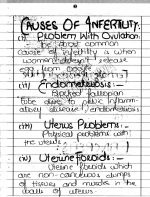 CAUSES OF INFERTILITY:
(i) Problem With Ovulation:
The most common
cause of infertility is when
women doesn't release
egg from ovary
(ii) Endometriosis:-
Blocked fallopian
tube due to pelvic inflamm-
atory disease / endometriosis
(iii) Uterus Problems:-
Physical problems with
the uterus.
(iv) Uterine Fibroids:-
Uterine fibroids which
are non-cancerous clumps
of tissues and muscles in the
walls of uterus